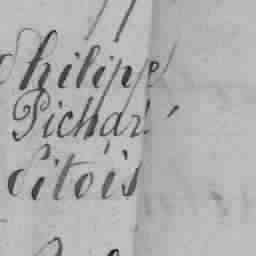 Philippe
Pichar
Citois